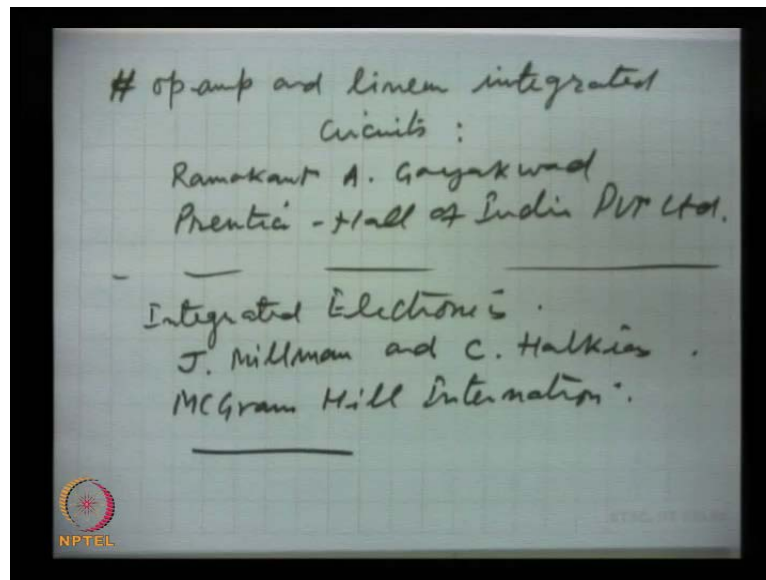 # op-amp and linear integrated
Circuits :
Ramakant A. Gayakwad
Prentice - Hall of India Pvt Ltd.
Integrated Electronics .
J. Millman and C. Halkias .
McGraw Hill Internation .
NPTEL